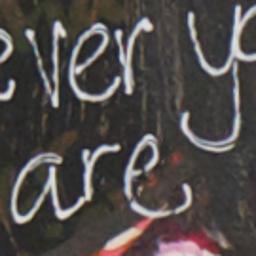 ever yo
are